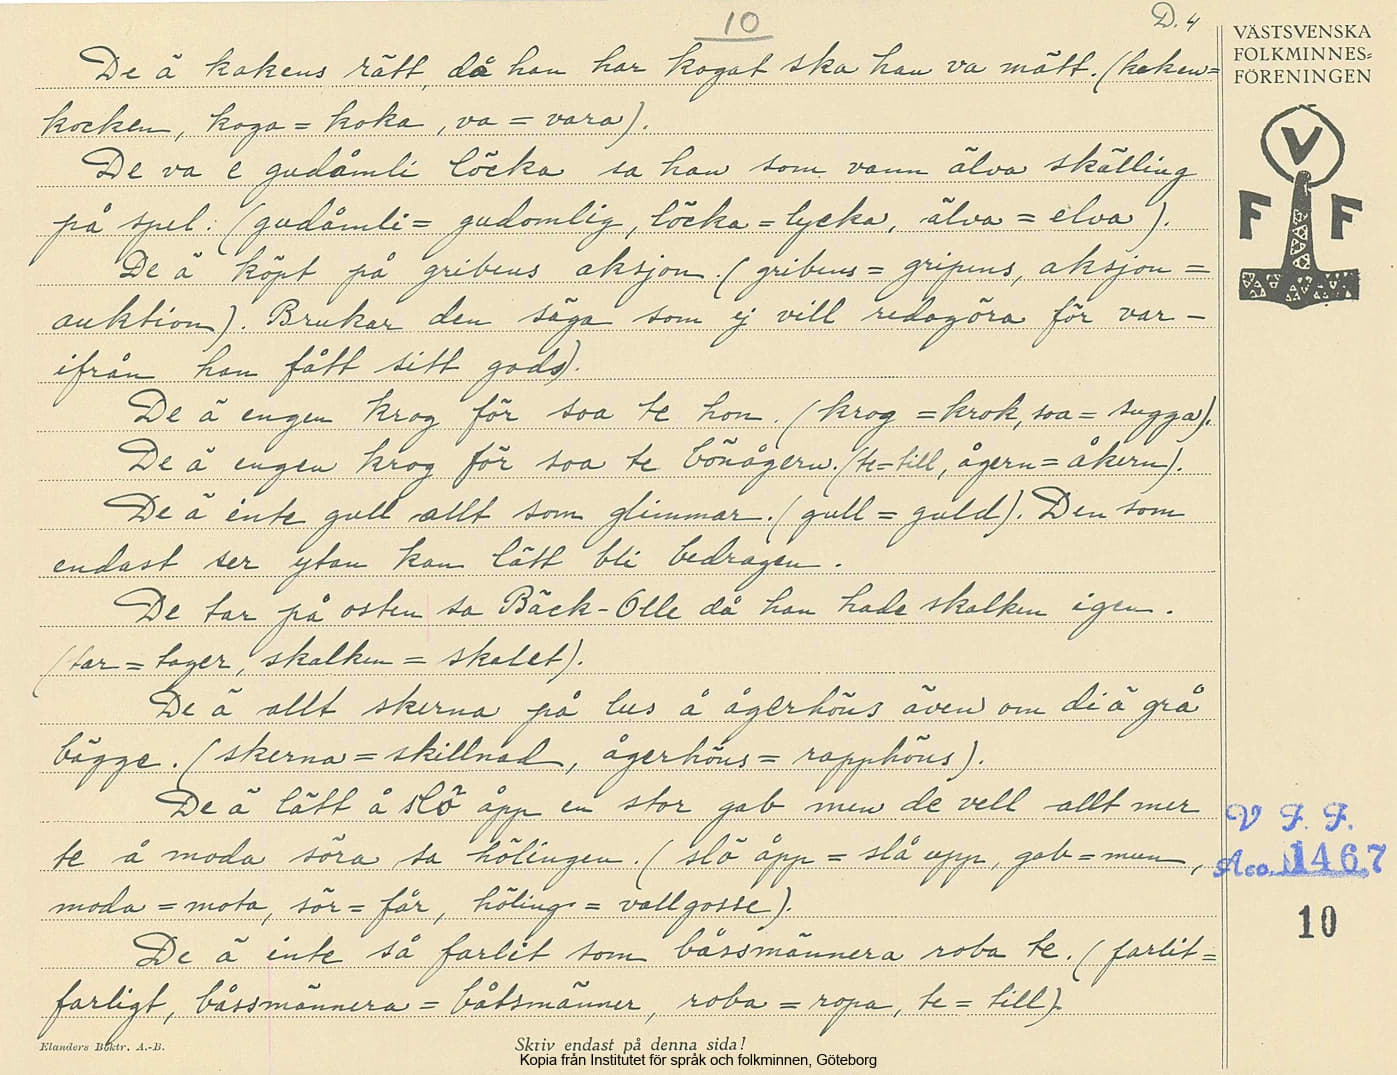 10
D. 4
De ä kokens rätt, då han har kogat ska han va mätt. (koken=
kocken, koga = koka, va = vara).
De va e gudåmli löcka sa han som vann älva skälling
på spel. (gudåmli = gudomlig, löcka = lycka, älva = elva).
De ä köpt på gribens aksjon. (gribens = gripens, aksjon =
auktion). Brukar den säga som ej vill redogöra för var-
ifrån han fått sitt gods).
De ä engen krog för soa te hon. (krog = krok, soa = sugga).
De ä engen krog för soa te bönågern. (te = till, ågern = åkern).
De ä inte gull allt som glimmar. (gull = guld). Den som
endast ser ytan kan lätt bli bedragen.
De tar på osten sa Bäck-Olle då han hade skalken igen.
(tar = tager, skalken = skalet).
De ä allt skerna på lus å ågerhöns även om di ä grå
bägge. (skerna = skillnad, ågerhöns = rapphöns).
De ä lätt å slö åpp en stor gab men de vell allt mer
te å moda söra sa hölingen. (slö åpp = slå upp, gab = mun,
moda = mota, sör = får, höling = vallgosse).
De ä inte så farlit som båssmännera roba te. (farlit =
farligt, båssmännera = båtsmänner, roba = ropa, te = till).
Elanders Boktr. A.-B.
Skriv endast på denna sida!
Kopia från Institutet för språk och folkminnen, Göteborg
VÄSTSVENSKA
FOLKMINNES=
FÖRENINGEN
V
F F
V. F. F.
Acc. 1467
10